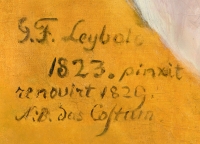 G.F. Leybold
1823. pinxit
renovirt 1829.
N.B. das Costum.